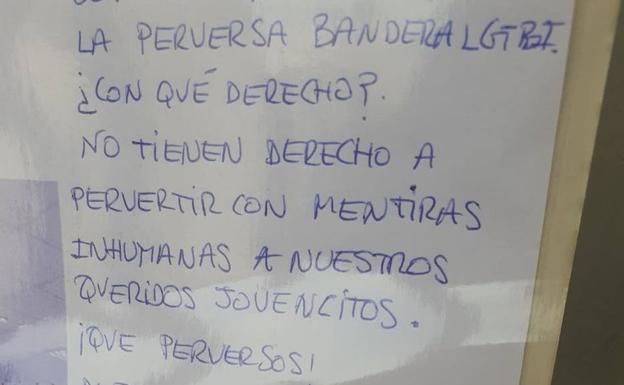 LA PERVERSA BANDERA LGTBI.
¿CON QUÉ DERECHO?.
NO TIENEN DERECHO A
PERVERTIR CON MENTIRAS
INHUMANAS A NUESTROS
QUERIDOS JOVENCITOS.
¡QUE PERVERSOS!